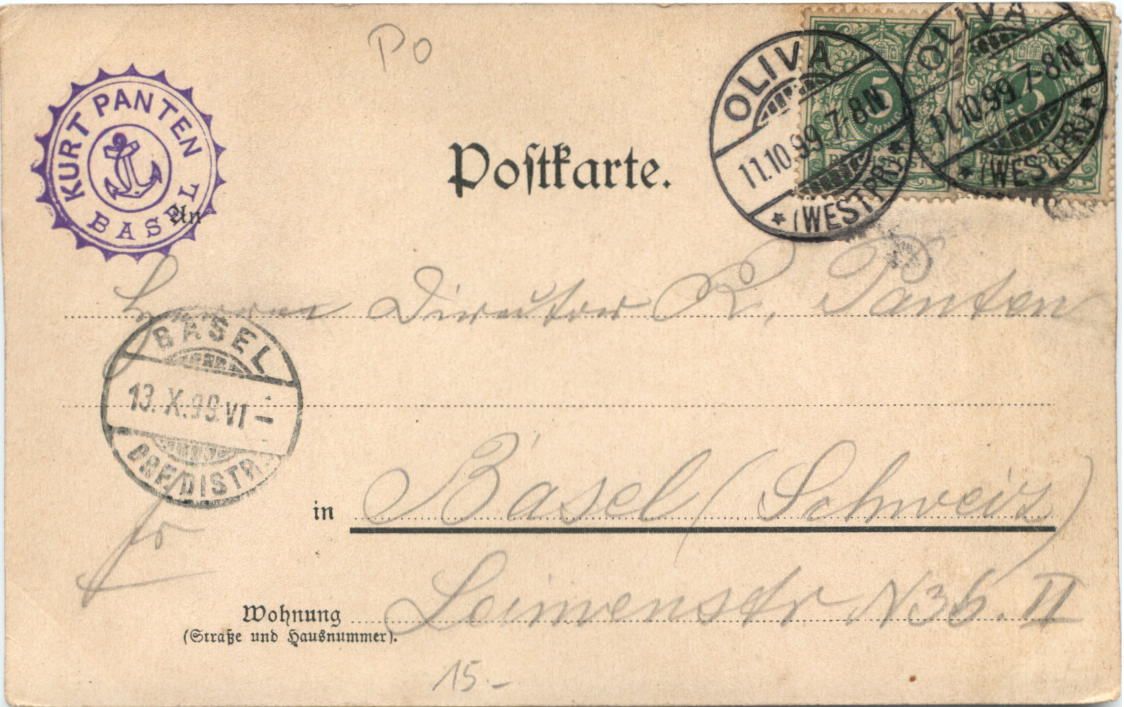 Po
KURT PANTEN
BASEL
OLIVA
11.10.99 7-8N
*(WESTPR.)*
OLIVA
11.10.99 7-8N
*(WESTPR.)*
5
5
Postkarte.
An
Herrn Director R. Panten
BASEL
13.X.99.VI-
BRF.DISTR.
in Basel (Schweiz)
fr
Wohnung Leimenstr N36. II
(Straße und Hausnummer).
15.-